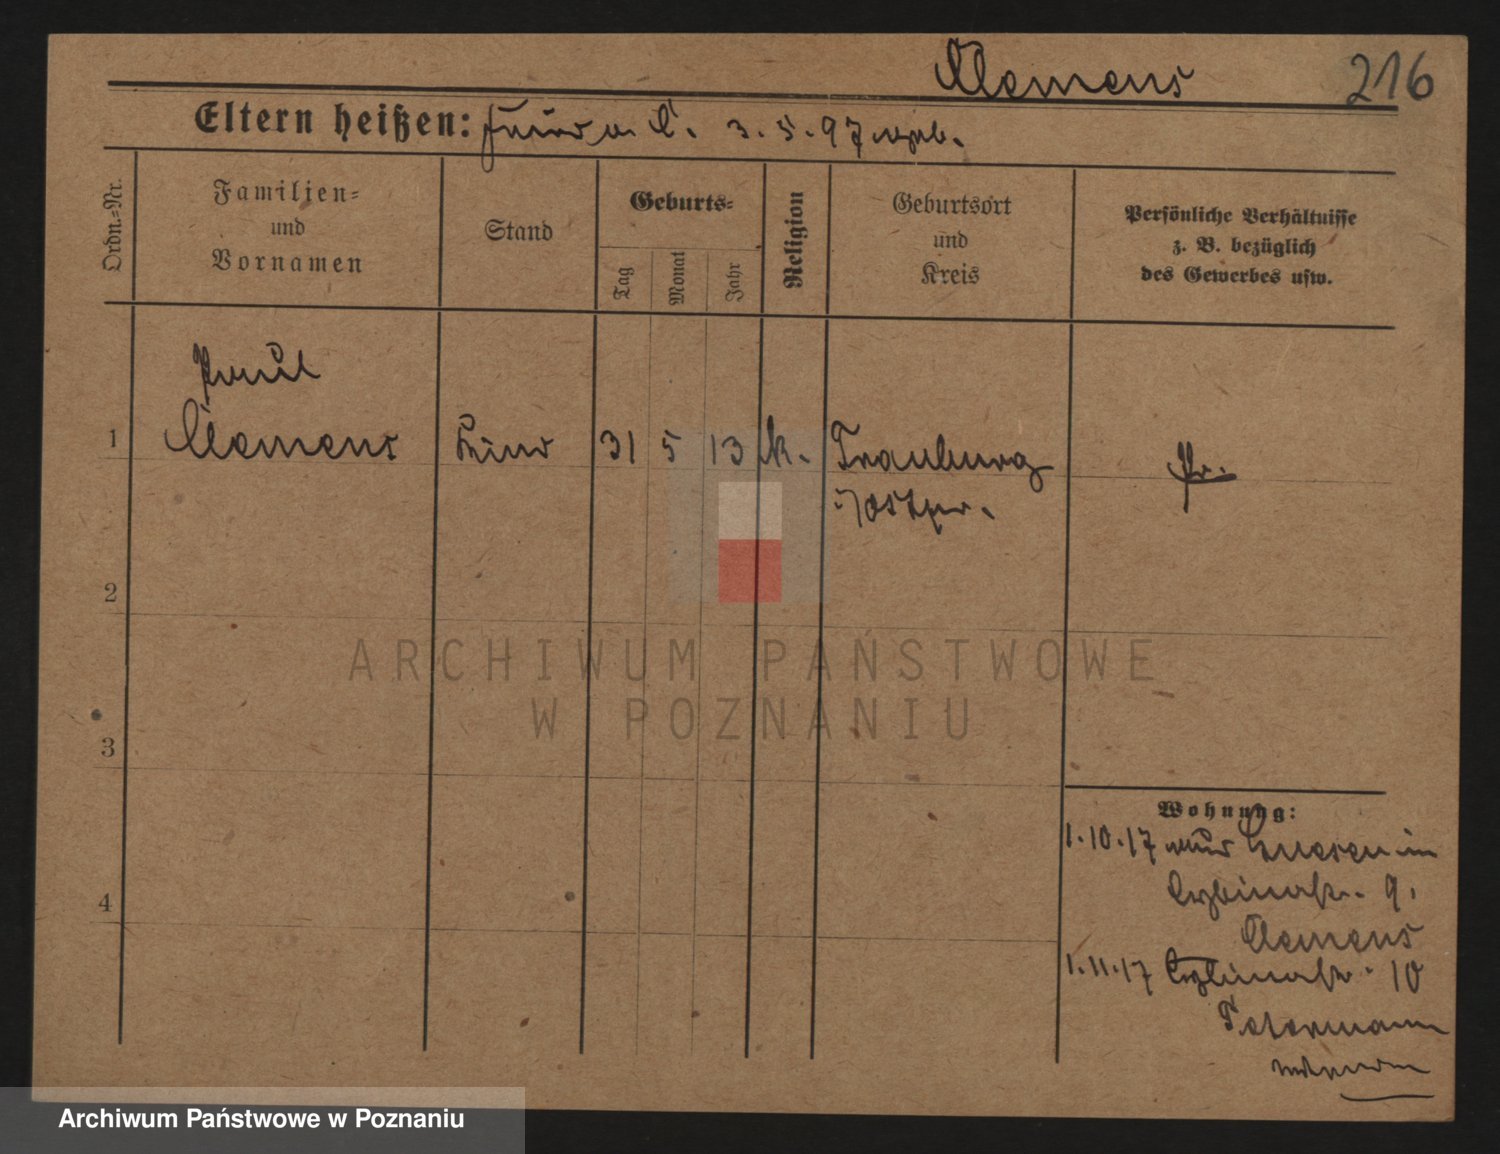 Clemens
216
Eltern heißen: C. 3.5.97 geb.
Ordn.-Nr.
Familien-
und
Vornamen
Stand
Geburts-
Tag
Monat
Jahr
Religion
Geburtsort
und
Kreis
Persönliche Verhältnisse
z. B. bezüglich
des Gewerbes usw.
Paul
1 Clemens Kind 31 5 13 k. Frauburg Pr.
i/Ostpr.
2
3
4
Wohnung:
1.10.17 aus Gnesen in
9,
Clemens
1.11.17 10
Petermann
ARCHIWUM PAŃSTWOWE
W POZNANIU
Archiwum Państwowe w Poznaniu